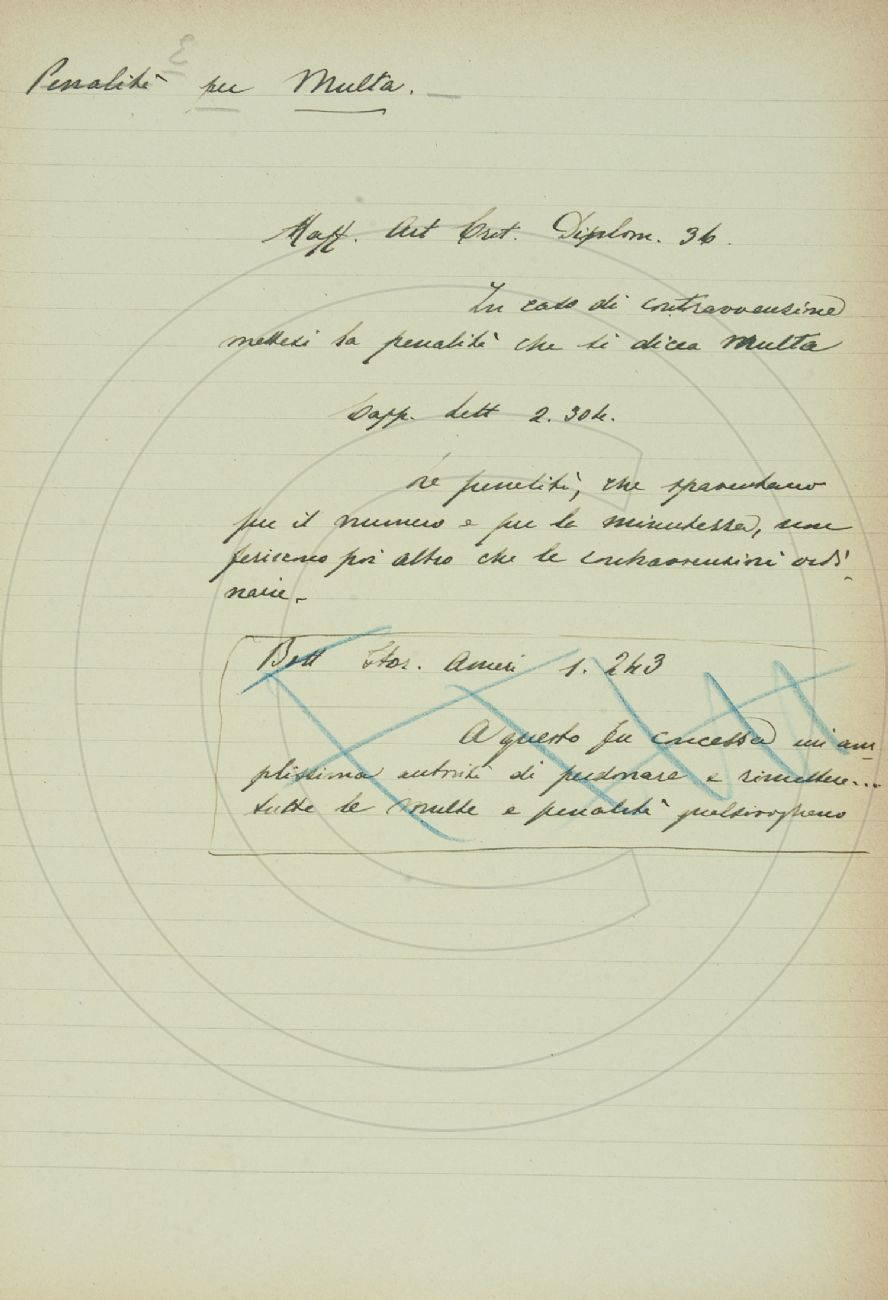 Penalità per Multa.
Maff. Art Crit. Diplom. 36.
In caso di contravvenzione
mettesi la penalità che si dicea multa
Lapp. Lett 2. 304.
le penalità, che spaventano
per il numero e per la minutezza, non
feriscono poi altro che le contravvenzioni ordi
narie.
Bott Stor. Ameri 1. 243
A questo fu concessa un am
plissima autorità di perdonare e rimettere...
tutte le multe e penalità qualsivogliano